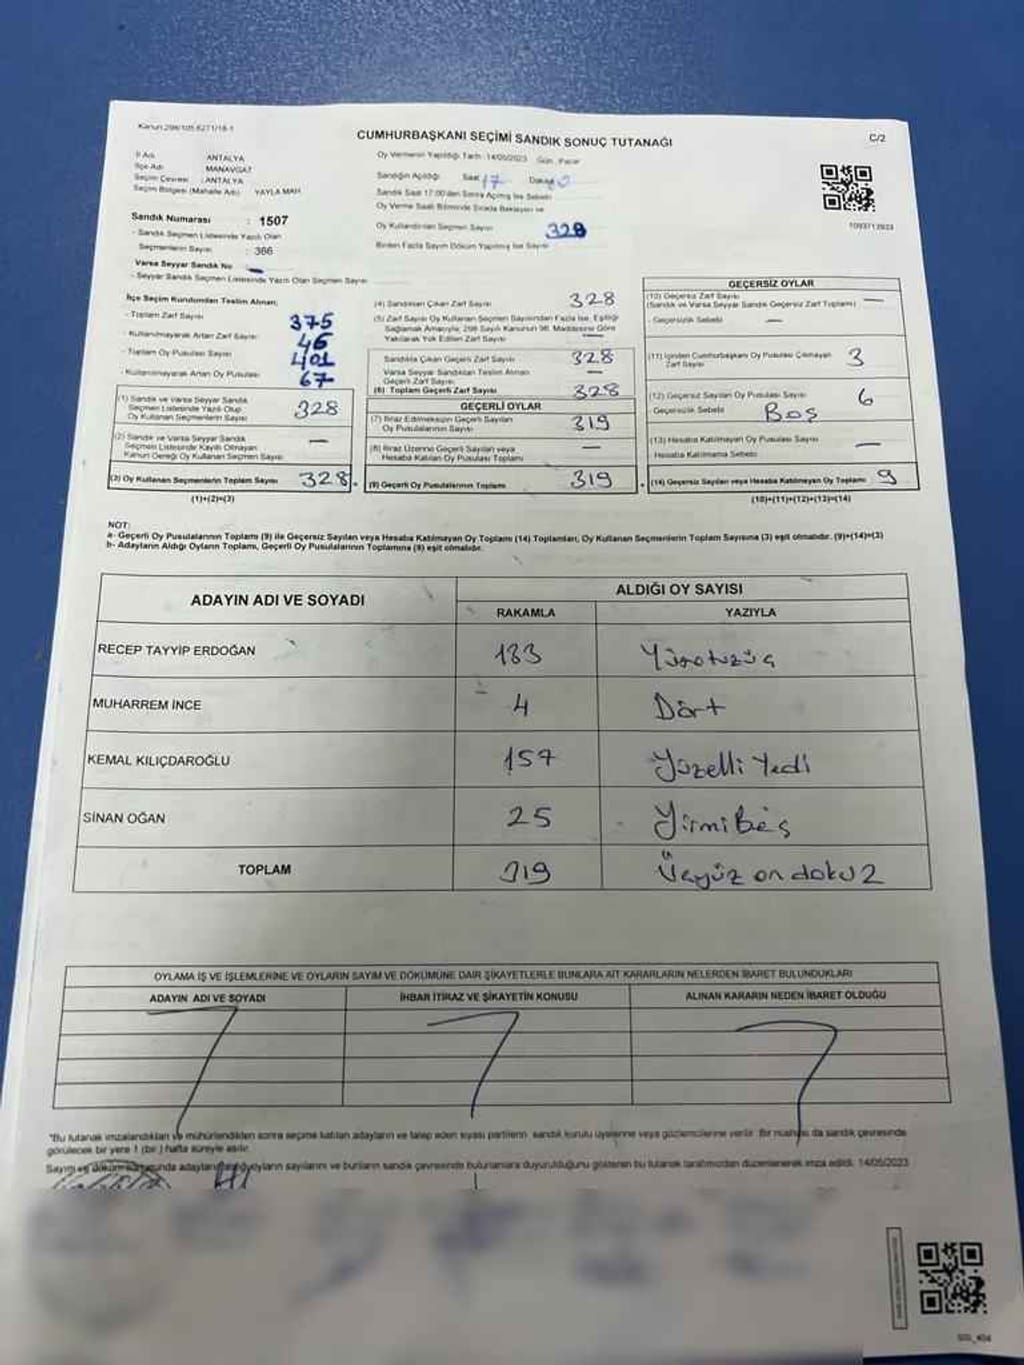 Kanun:298/105.6271/16-1
CUMHURBAŞKANI SEÇİMİ SANDIK SONUÇ TUTANAĞI
C/2
İl Adı ANTALYA
İlçe Adı MANAVGAT
Seçim Çevresi : ANTALYA
Seçim Bölgesi (Mahalle Adı) YAYLA MAH
Sandık Numarası : 1507
- Sandık Seçmen Listesinde Yazılı Olan
Seçmenlerin Sayısı : 366
Varsa Seyyar Sandık No
- Seyyar Sandık Seçmen Listesinde Yazılı Olan Seçmen Sayısı
Oy Vermenin Yapıldığı Tarih :14/05/2023 Gün : Pazar
Sandığın Açıldığı Saat 17 Dakika
Sandık Saat 17:00'den Sonra Açılmış İse Sebebi
Oy Verme Saati Bitiminde Sırada Bekleyen ve
Oy Kullandırılan Seçmen Sayısı 328
Birden Fazla Sayım Döküm Yapılmış İse Sayısı
1093713923
İlçe Seçim Kurulundan Teslim Alınan;
- Toplam Zarf Sayısı 375
- Kullanılmayarak Artan Zarf Sayısı 46
- Toplam Oy Pusulası Sayısı 401
- Kullanılmayarak Artan Oy Pusulası 67
(1) Sandık ve Varsa Seyyar Sandık
Seçmen Listesinde Yazılı Olup
Oy Kullanan Seçmenlerin Sayısı 328
(2) Sandık ve Varsa Seyyar Sandık
Seçmen Listesinde Kayıtlı Olmayan
Kanun Gereği Oy Kullanan Seçmen Sayısı —
(3) Oy Kullanan Seçmenlerin Toplam Sayısı 328
(1)+(2)=(3)
(4) Sandıktan Çıkan Zarf Sayısı 328
(5) Zarf Sayısı Oy Kullanan Seçmen Sayısından Fazla İse, Eşitliği
Sağlamak Amacıyla; 298 Sayılı Kanunun 98. Maddesine Göre
Yakılarak Yok Edilen Zarf Sayısı —
Sandıkta Çıkan Geçerli Zarf Sayısı 328
Varsa Seyyar Sandıktan Teslim Alınan
Geçerli Zarf Sayısı —
(6) Toplam Geçerli Zarf Sayısı 328
GEÇERLİ OYLAR
(7) İtiraz Edilmeksizin Geçerli Sayılan
Oy Pusulalarının Sayısı 319
(8) İtiraz Üzerine Geçerli Sayılan veya
Hesaba Katılan Oy Pusulası Toplamı —
(9) Geçerli Oy Pusulalarının Toplamı 319
GEÇERSİZ OYLAR
(10) Geçersiz Zarf Sayısı
(Sandık ve Varsa Seyyar Sandık Geçersiz Zarf Toplamı) —
- Geçersizlik Sebebi —
(11) İçinden Cumhurbaşkanı Oy Pusulası Çıkmayan
Zarf Sayısı 3
(12) Geçersiz Sayılan Oy Pusulası Sayısı 6
Geçersizlik Sebebi Boş
(13) Hesaba Katılmayan Oy Pusulası Sayısı —
Hesaba Katılmama Sebebi
(14) Geçersiz Sayılan veya Hesaba Katılmayan Oy Toplamı 9
(10)+(11)+(12)+(13)=(14)
NOT:
a- Geçerli Oy Pusulalarının Toplamı (9) ile Geçersiz Sayılan veya Hesaba Katılmayan Oy Toplamı (14) Toplamları, Oy Kullanan Seçmenlerin Toplam Sayısına (3) eşit olmalıdır. (9)+(14)=(3)
b- Adayların Aldığı Oyların Toplamı, Geçerli Oy Pusulalarının Toplamına (9) eşit olmalıdır.
ADAYIN ADI VE SOYADI
ALDIĞI OY SAYISI
RAKAMLA YAZIYLA
RECEP TAYYİP ERDOĞAN 133 Yüzotuzüç
MUHARREM İNCE 4 Dört
KEMAL KILIÇDAROĞLU 157 Yüzelli Yedi
SİNAN OĞAN 25 YirmiBeş
TOPLAM 319 Üçyüz on dokuz
OYLAMA İŞ VE İŞLEMLERİNE VE OYLARIN SAYIM VE DÖKÜMÜNE DAİR ŞİKAYETLERLE BUNLARA AİT KARARLARIN NELERDEN İBARET BULUNDUKLARI
ADAYIN ADI VE SOYADI İHBAR İTİRAZ VE ŞİKAYETİN KONUSU ALINAN KARARIN NEDEN İBARET OLDUĞU
*Bu tutanak imzalandıktan ve mühürlendikten sonra seçime katılan adayların ve talep eden siyasi partilerin sandık kurulu üyelerine veya gözlemcilerine verilir. Bir nüshası da sandık çevresinde
görülecek bir yere 1 (bir) hafta süreyle asılır.
Sayım ve döküm sonunda adayların aldığı oyların sayılarını ve bunların sandık çevresinde bulunanlara duyurulduğunu gösteren bu tutanak tarafımızdan düzenlenerek imza edildi. 14/05/2023